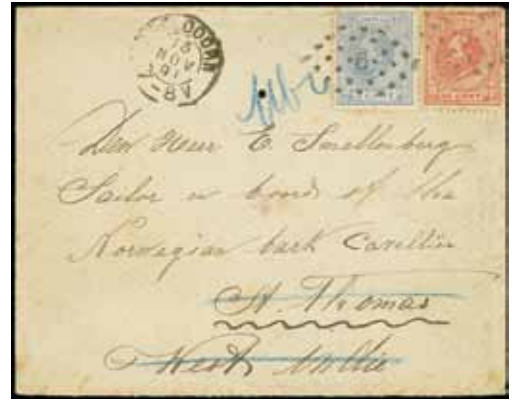 DOORN
13
NOV
91
7-8V
Den Heer E. Smellenberg
Sailor on board of the
Norwegian bark Cavellier
St. Thomas
West Indie